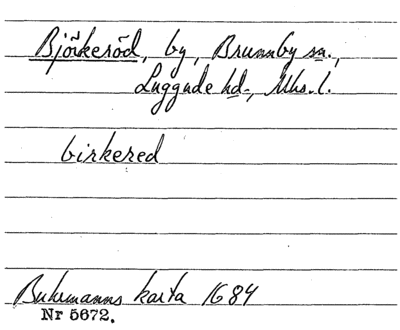 Björkeröd, by, Brunnby sn.,
Luggude hd., Mhs. l.
birkered
Buhrmanns karta 1684
Nr 5672.